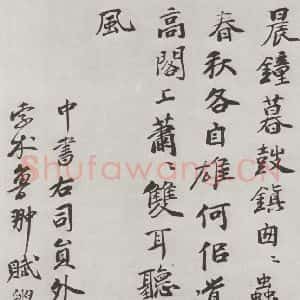 晨鐘暮鼓鎮〻蟲
春秋各自雄何佀
高閣上蕭〻雙耳聽
風
中書右司員外
孛术魯翀賦
Shufawang.CN